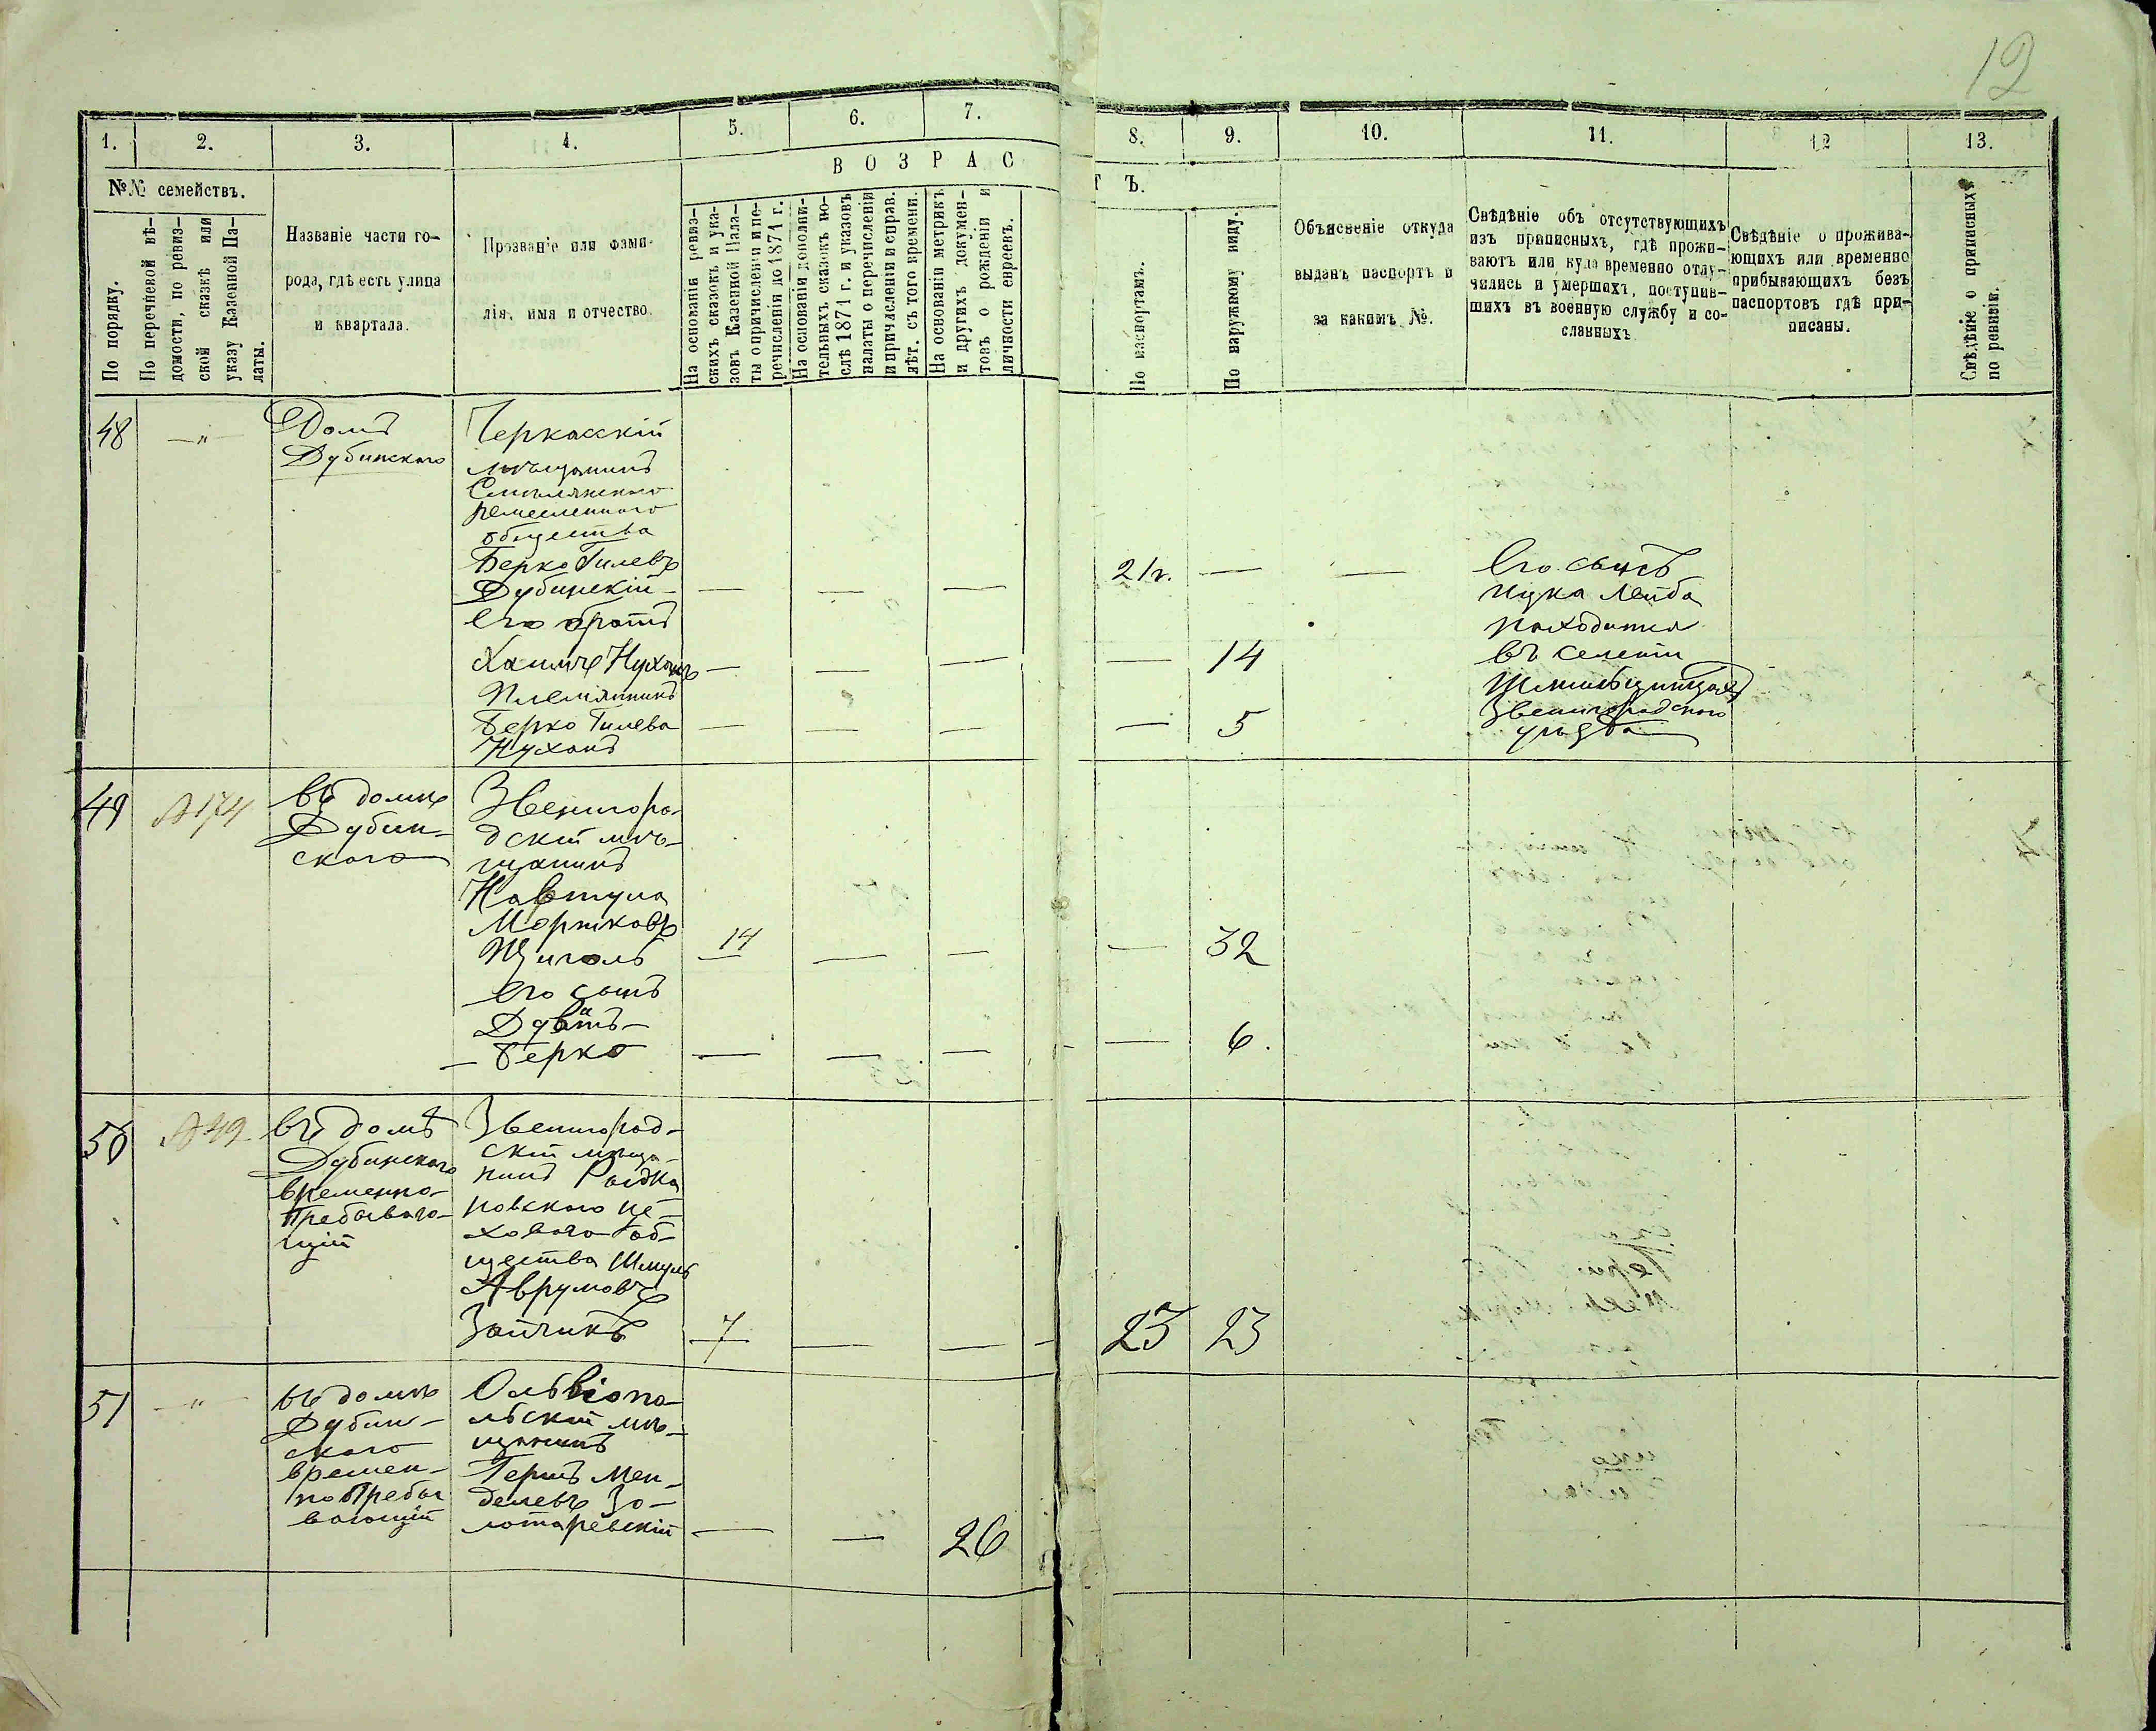 12
1. 2. 3. 4. 5. 6. 7. 8. 9. 10. 11. 12 13.
№№ семействъ.
В О З Р А С Т Ъ.
По порядку.
По перечневой вѣ-
домости, по ревиз-
ской сказкѣ или
указу Казенной Па-
латы.
Названіе части го-
рода, гдѣ есть улица
и квартала.
Прозваніе или фами-
лія, имя и отчество.
На основаніи ревиз-
скихъ сказокъ и ука-
зовъ Казенной Пала-
ты о причисленіи и пе-
речисленіи до 1871 г.
На основаніи дополни-
тельныхъ сказокъ по-
слѣ 1871 г. и указовъ
палаты о перечисленіи
и причисленіи и справ.
лѣт. съ того времени.
На основаніи метрикъ
и другихъ докумен-
товъ о рожденіи и
личности евреевъ.
По паспортамъ.
По наружному виду.
Объясненіе откуда
выданъ паспортъ и
за какимъ №.
Свѣдѣніе объ отсутствующихъ
изъ приписныхъ, гдѣ прожи-
ваютъ или куда временно отлу-
чились и умершихъ, поступив-
шихъ въ военную службу и со-
сланныхъ
Свѣдѣніе о прожива-
ющихъ или временно
прибывающихъ безъ
паспортовъ гдѣ при-
писаны.
Свѣдѣніе о приписныхъ
по ревизіи.
48 — " —
Домъ
Дубинскаго
Черкасскій
мѣщанинъ
Смѣлянскаго
ремесленнаго
общества
Берко Гилевъ
Дубинскій — — — — 21 г. — —
его братъ
Хаимъ Нухимъ — — — — 14
Племянникъ
Берко Гилева — — — — 5
Нуханъ
Его сынъ
Ицка Лейба
находится
въ селеніи
Звенигородского
уѣзда
49 № 174
въ домѣ
Дубин-
скаго
Звенигоро-
дскій мѣ-
щанинъ
Навтула
Мортковъ
Щиголь 14 — — — 32
его сынъ
Дувидъ-
Берко — — — — 6.
50 № 49
въ домѣ
Дубинскаго
временно-
Пребываю-
щій
Звенигород-
скій мѣща-
нинъ
новскаго це-
ховаго об-
щества Шмуль
Аврумовъ
Зайчикъ 7 — — 23 23
51 — " —
въ домѣ
Дубин-
скаго
времен-
но Пребы
вающій
Ольвіопо-
льскій мѣ-
щанинъ
Гершъ Мен-
делевъ Зо-
лотаревскій — — 26